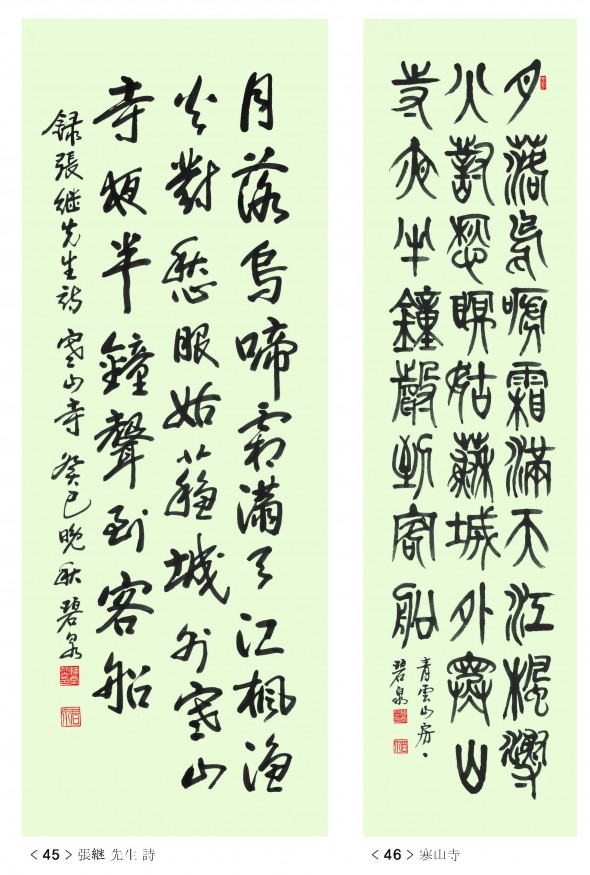 月落烏啼霜滿天江楓漁
火對愁眠姑蘇城外寒山
寺夜半鐘聲到客船
録張継先生詩 寒山寺 癸巳晩秋 碧泉
< 45 > 張継 先生 詩
月落烏嗁霜滿天江楓漁
火對愁瞑姑蘇城外寒山
寺夜半鐘聲到客船
青雲山房
碧泉
< 46 > 寒山寺